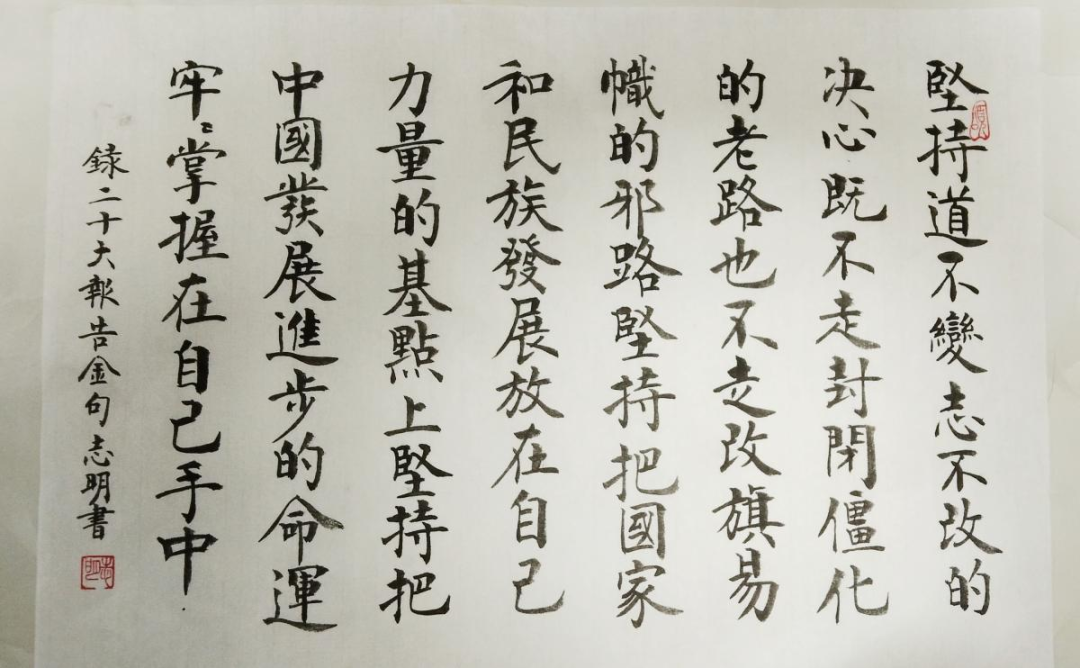 堅持道不變志不改的
决心既不走封閉僵化
的老路也不走改旗易
幟的邪路堅持把國家
和民族發展放在自己
力量的基點上堅持把
中國發展進步的命運
牢〻掌握在自己手中
録二十大報告金句志明書